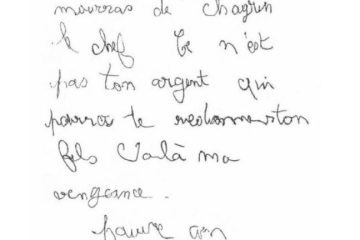 mourras de chagrin
le chef Ce n'est
pas ton argent qui
pourra te redonner ton
fils Voilà ma
vengeance.
pauvre con